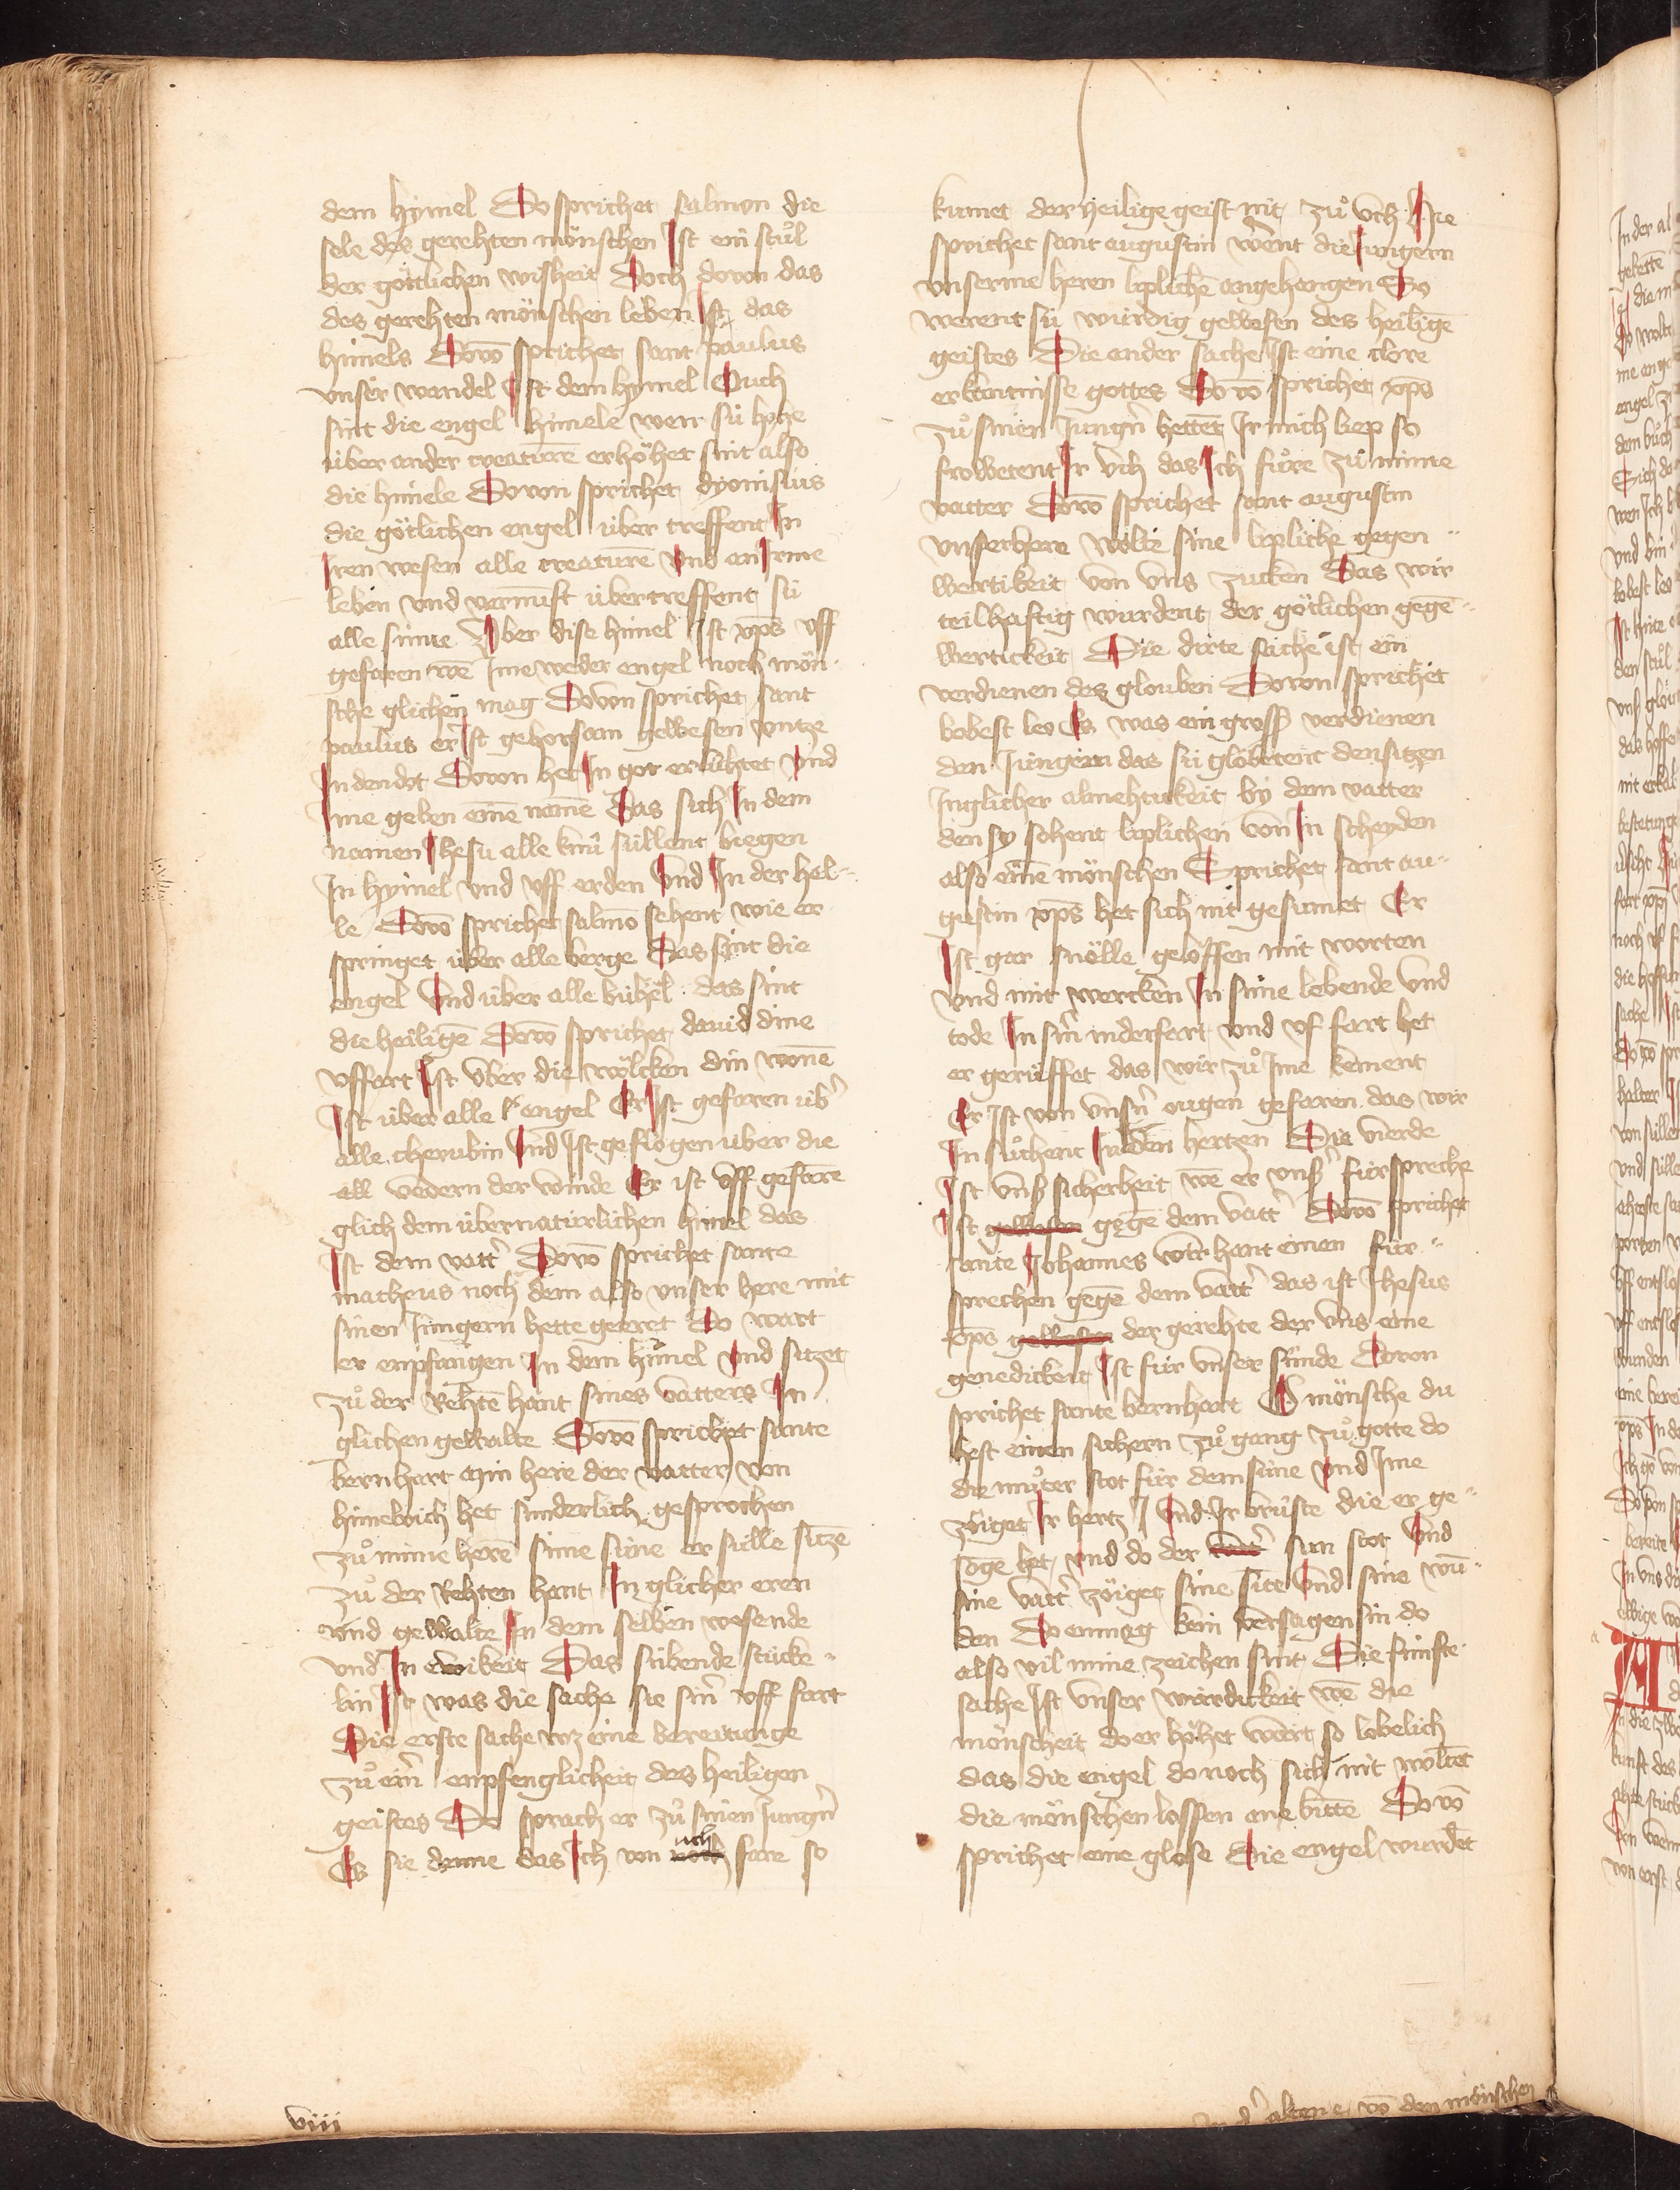 dem hymel Do sprichet salmon die
sele des gerehten mönschen Ist ein stuͦl
der göttlichen wisheit Doch dovon das
des gerehten mönschen leben Ist das
himels Dovō sprichet sant paulus
unser wandel Ist dem hymel Ouch
sint die engel himele wen sü hohe
über ander creaturē erhöhet sint also
die himele Dovon sprichet dyonisius
die götlichen engel über treffent In
Iren wesen alle creaturē Und an Irme
leben vnd vernunft übertreffent sü
alle sinne Über dise himel Ist xp̄s vff
gefaren wē Ime weder engel noch mön
sche glichen mag Dovon sprichet sant
paulus er Ist gehorsam gewesen vntze
In den dot Dovon het In got erlühtet Und
Ime geben einē namē Das sich In dem
namen Ihesu alle knü süllent biegen
In hymel vnd vff erden Und In der hel-
le Dovō sprichet salmō sehent wie er
springet über alle berge Das sint die
engel Und über alle bühel das sint
die heiligē Dovō sprichet dauid dine
vffart Ist über die wölcken din wonē
Ist über alle engel Er Ist gefaren üb̄
alle cherubin Und Ist geflogen über die
all vedern der winde Er ist vff gefarē
glich dem übernatürlichen himel das
Ist dem vatt̄ Dovō sprichet sante
matheus noch dem also vnser here mit
sinen Jüngern hette geeret Do wart
er enpfangen In dem himel Und sitzet
zuͦ der Rehtē hant sines vatters In
glichen gewalte Dovō sprichet sante
bernhart Min here der vatter von
himelrich het sünderlich gesprochen
zuͦ mime herē sime süne er sülle sitzē
zuͦ der Rehten hant In glicher eren
Und gewalte In dem selben wesende
vnd In ewikeit Das sübende stücke-
lin Ist was die sache sie sin̄ vff fart
Die erste sache wz eine bereitunge
zuͦ ein̄ enpfenglicheit des heiligen
geistes Do sprach er zuͦ sinen Jungn̄
Es sie denne das Ich von uch fare so
kumet der heilige geist nit zuͦ vch Hie
sprichet sant augustin Went die Jungern
vnserme heren liplichē angehangen Do
werent sü würdig gewesen des heiligē
geistes Die ander sache Ist eine clore
erkantnisse gottes Dovō sprichet xp̄s
zuͦ sinen Jungn̄ hettet Ir mich liep so
frowetent Ir vch das Ich fuͤre zuͦ mime
vatter Dovō sprichet sant augustin
vnser here wolte sine lipliche gegen-
wertikeit von vns zucken Das wir
teilhaftig wurdent der götlichen gegē-
wertickeit Die dirte sache ist ein
verdienen des glouben Dovon sprichet
bobest leo Es was ein gross verdienen
den Jüngern das sü globetent den sitzen
Inglicher almehtickeit by dem vatter
den sy sohent liplichen von In scheyden
also einē mönschen Sprichet sant au-
gustin xp̄s het sich nit gesumet Er
Ist gar snölle geloffen mit worten
Und mit wercken In sime lebende Und
tode In sin̄ niderfart Und vf fart het
er gerüffet das wir zuͦ Ime kement
Er Ist von vnsn̄ ougen gefaren das wir
In suͦchent In den hertzen Die vierde
Ist vnss sicherheit wē er vnss fürspreche
Ist gewesen gegē dem vatt̄ Dovō sprichet
sante Johannes wir hant einen für-
sprechen gegē dem vatt̄ das ist Ihesus
xp̄s gewesen der gerehte der vns eine
genedickeit Ist für vnser sünde Dovon
sprichet sante bernhart O mönsche du
hest einen sichern zuͦgang zuͦ gotte do
die muͦter stot für dem süne Und Ime
zöiget Ir hertz Und Ir brüste die er ge-
soge het Und do der sun stot Und
sine vatt̄ zöiget sine site Und sine wū-
den Do enmag kein versagen sin do
also vil mine zeichen sint Die fünfte
sache Ist vnser würdickeit wē die
mönscheit do er höhet wart so lobelich
das die engel do noch sich nit woltēt
die mönschen lossen ane bittē Dovō
sprichet eine glose Die engel wurdēt
viij
altan e vō den mönschen